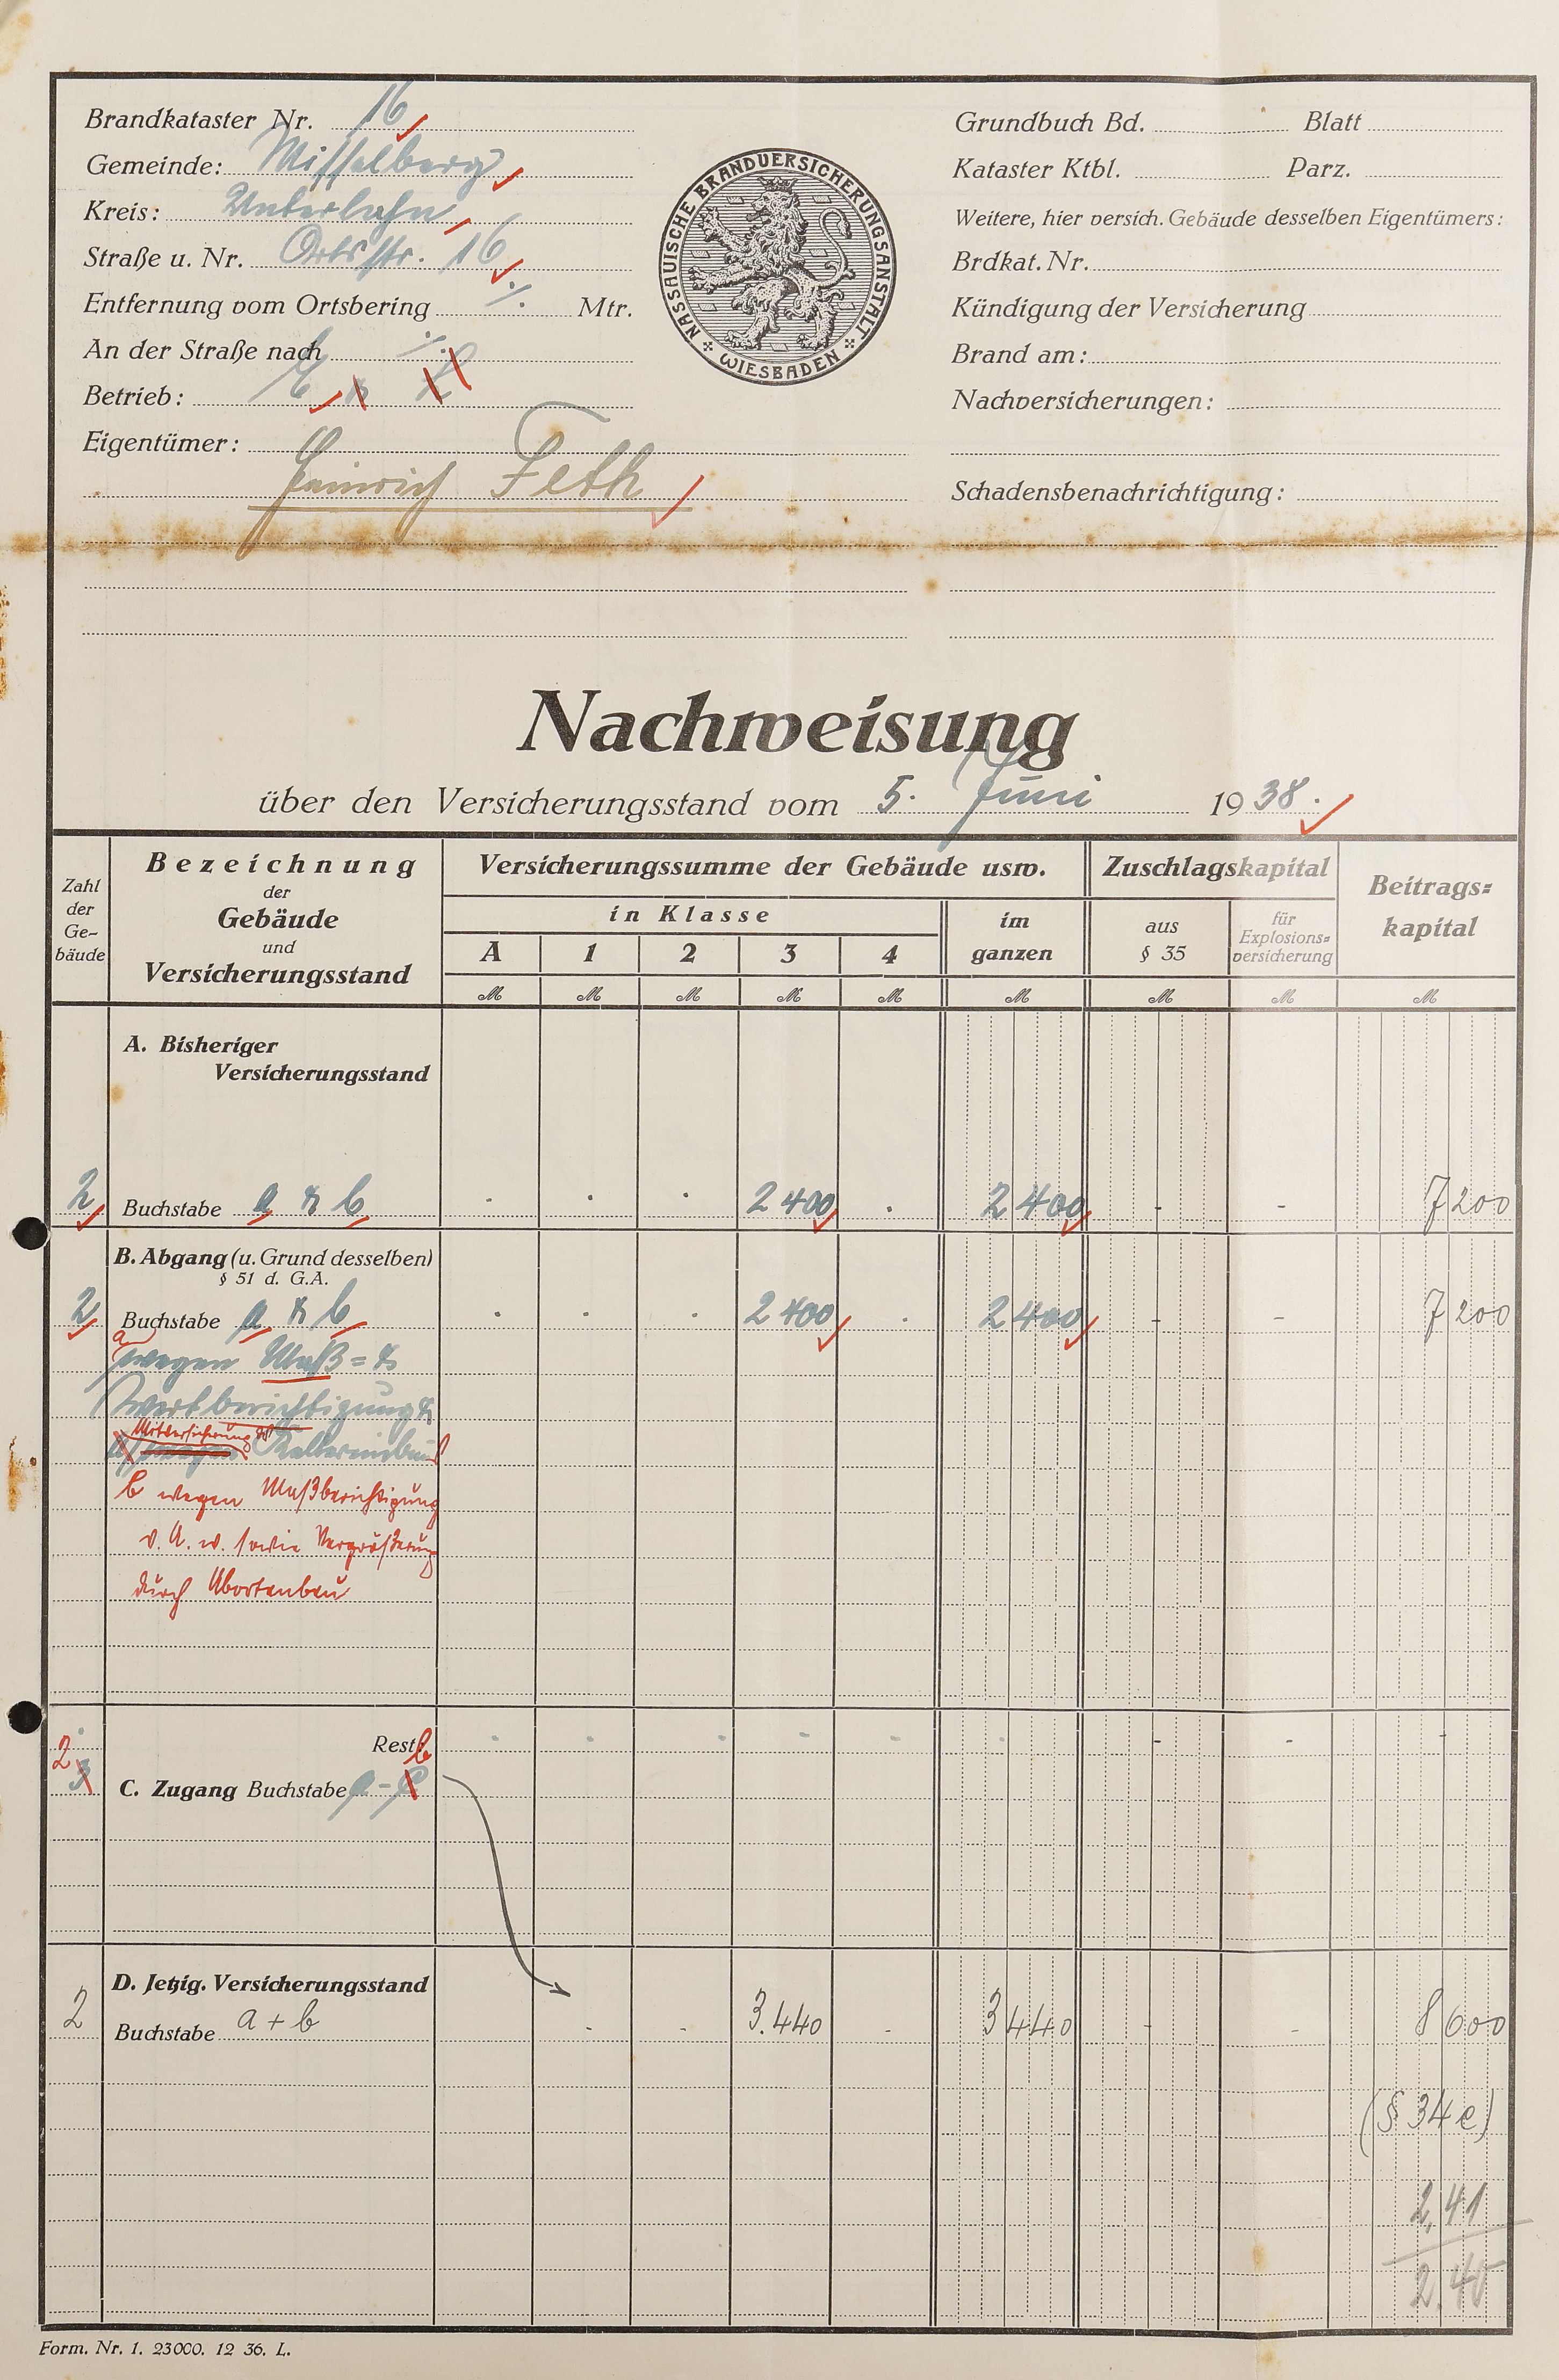 Brandkataster Nr. 16
Gemeinde: Misselberg
Kreis: Unterlahn
Straße u. Nr. Ortsstr. 16
Entfernung vom Ortsbering ·/. Mtr.
An der Straße nach ·/.
Betrieb:
Eigentümer:
Heinrich Feth
NASSAUISCHE BRANDVERSICHERUNGSANSTALT
WIESBADEN
Grundbuch Bd. Blatt
Kataster Ktbl. Parz.
Weitere, hier versich. Gebäude desselben Eigentümers:
Brdkat. Nr.
Kündigung der Versicherung
Brand am:
Nachversicherungen:
Schadensbenachrichtigung:
Nachweisung
über den Versicherungsstand vom 5. Juni 1938.
Zahl der Ge-bäude
Bezeichnung
der
Gebäude
und
Versicherungsstand
Versicherungssumme der Gebäude usw.
in Klasse
A 1 2 3 4
im ganzen
Zuschlagskapital
aus § 35
für Explosions-versicherung
Beitrags-kapital
M M M M M M M M M
A. Bisheriger
Versicherungsstand
2 Buchstabe a & b · · · 2 400 · 2 400 - - 7 200
B. Abgang (u. Grund desselben)
§ 51 d. G.A.
2 Buchstabe a & b · · · 2 400 · 2 400 - - 7 200
a wegen Maß= &
Wertberichtigung &
Mitversicherung d.
wegen Kellereinbau
b wegen Maßberichtigung
v. A. w. sowie Vergrößerung
durch Abortanbau
Rest - - - - - - - - -
2 3 C. Zugang Buchstabe a - b
D. Jetzig. Versicherungsstand
2 Buchstabe a + b - - 3.440 - 3 440 - - 8 600
(§ 34 e)
2,41
2.40
Form. Nr. 1. 23000. 12 36. L.